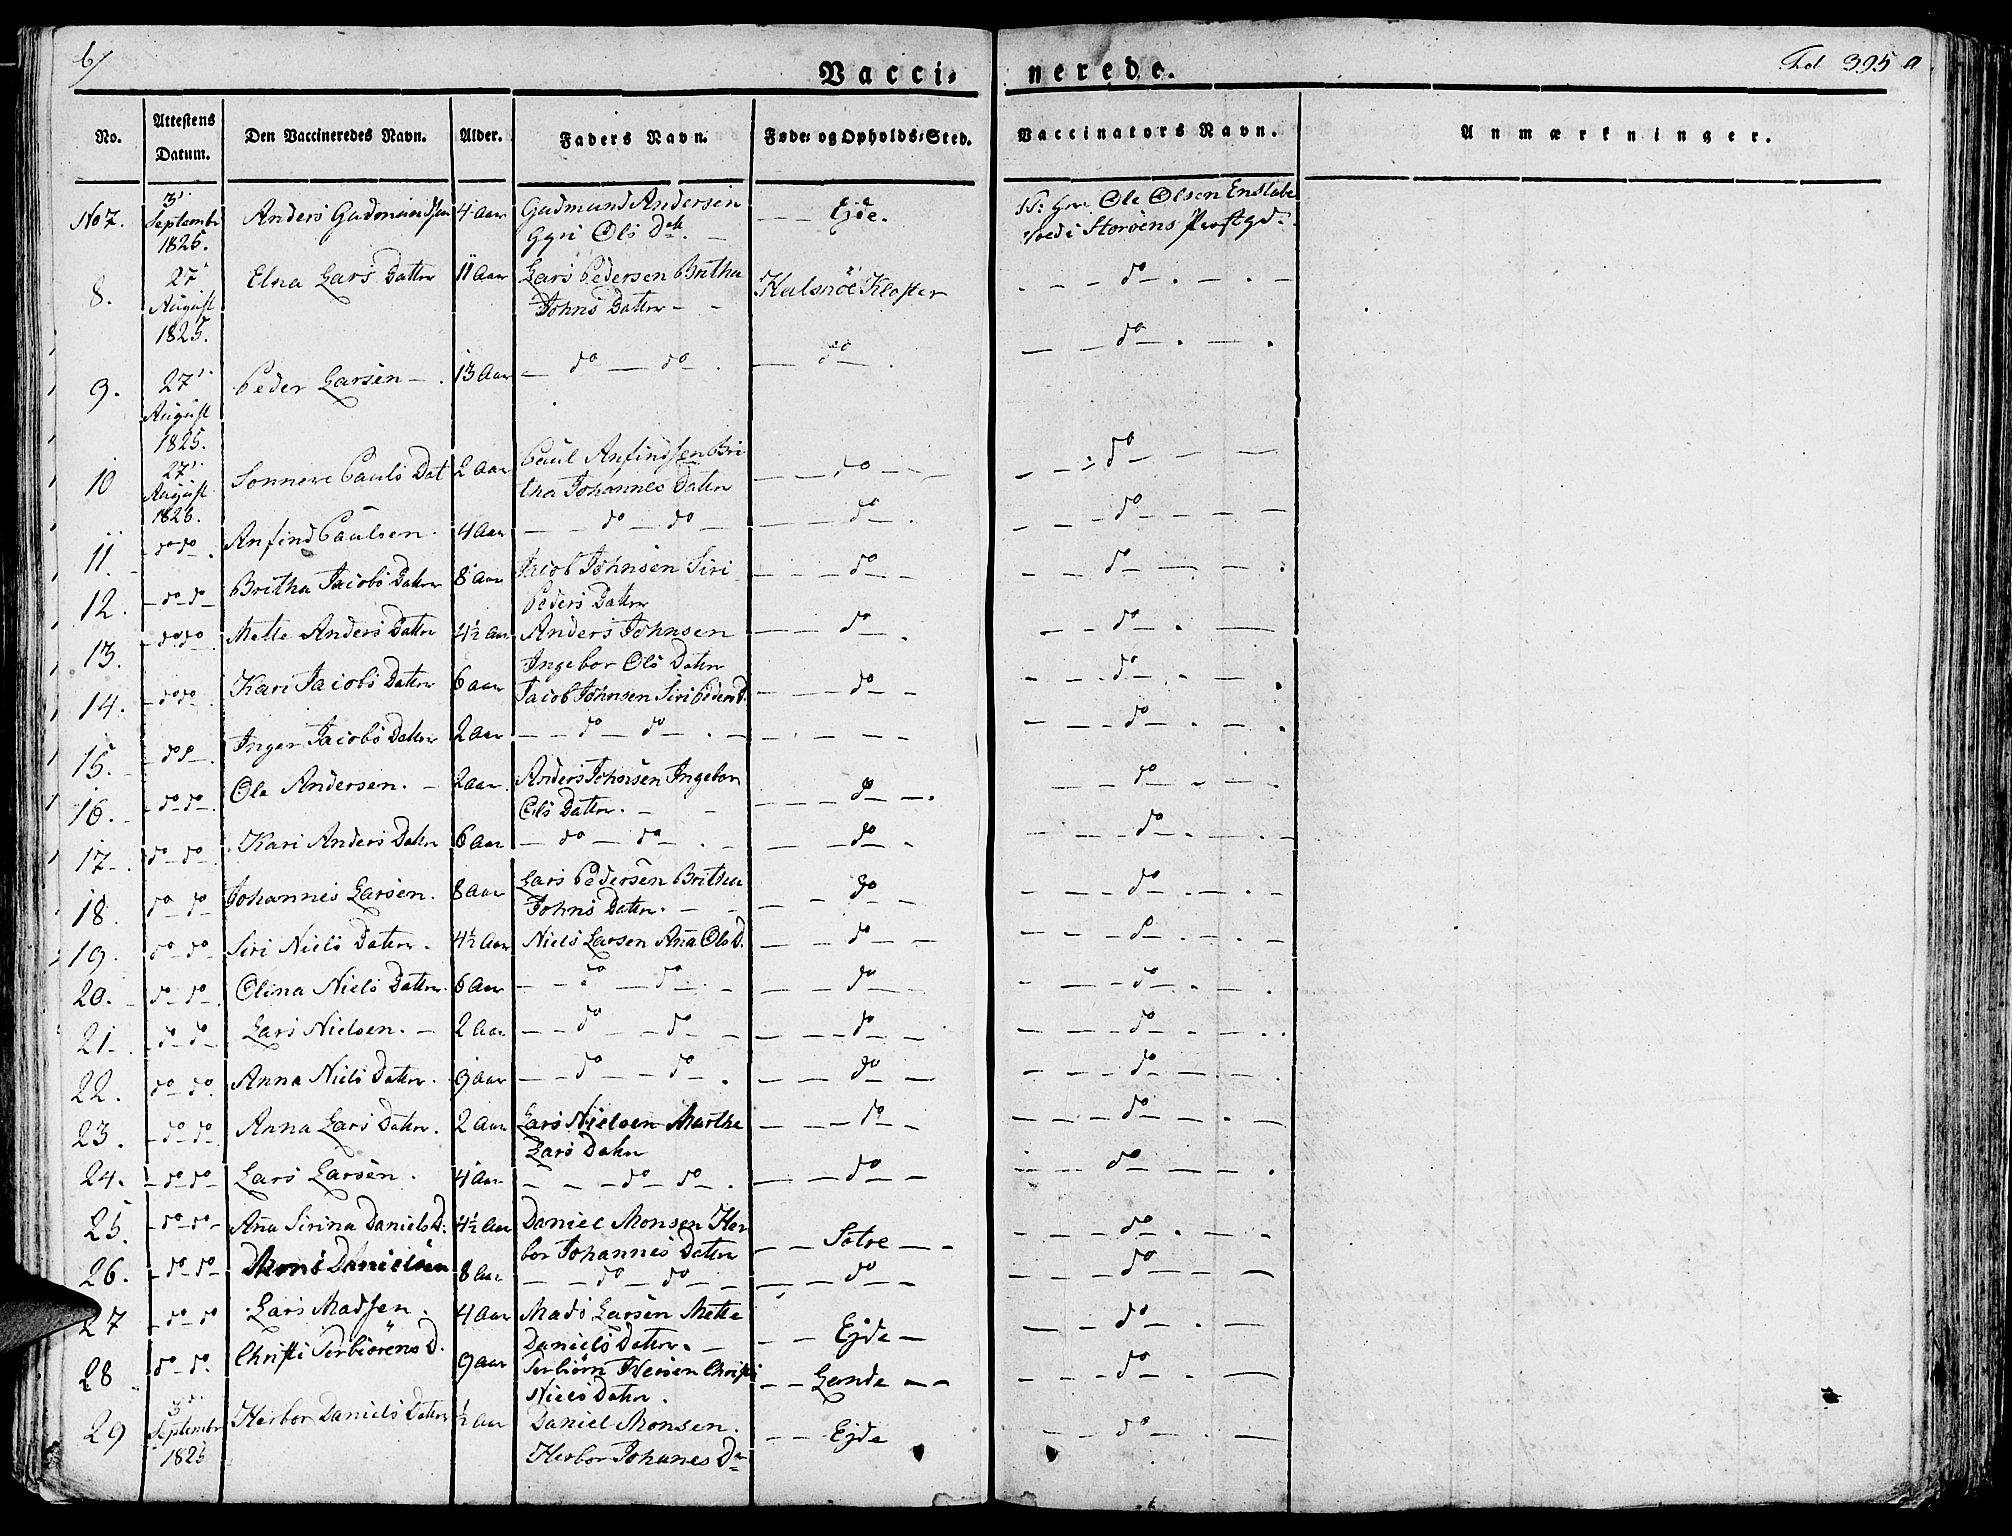 6/
Vacci-
nerede.
Fol 395 a
No.
Attestens Datum.
Den Vaccineredes Navn.
Alder.
Faders Navn.
Føde- og Opholds-Sted.
Vaccinators Navn.
Anmærkninger.
No 7. 3' Septembr 1825. Anders Gudmundsen 4 Aar Gudmund Andersen Gyri Ols Dat. — — Ejde. Ole Olsen Enstabe Storöens Prostgd.
8. 27 August 1825. Elna Lars Datter 11 Aar Lars Pedersen Britha Johns Datter — — Halsnöe Kloster — — — do — . — . —
9. 27' August 1825. Peder Larsen — . 13 Aar — do — do — . — do — . — — do — . — .
10 27' August 1825. Sonneve Pauls Dat 2 Aar Paul Anfindsen Britha Johannes Datter — — do — — — — : do — — —
11. — do do . Anfind Paulsen . 4 Aar — — do — do — — — do — . — — — do — — —
12. — do — do — Britha Jacobs Datter 8 Aar Jacob Johnsen Siri Peders Datter — — do — — — — do — — .
13. — do — do — Mette Anders Datter 4½ Aar Anders Johnsen Ingebor Ols Datter — — do — . — — do — . —
14. — do do Kari Jacobs Datter 6 Aar Jacob Johnsen Siri Peders D. — — do — — — — do — . — .
15. — do do — . Inger Jacobs Datter 2 Aar — — do — do — . — — . — — — — — — do — . — .
16. — do — do — . Ole Andersen . — 2 Aar Anders Johnsen Ingebor Ols Datter . — — — — — do — — . — — — do — . — —
17 — . do — do . Kari Anders Datter 6 Aar — do — do — . — — do — . — — — do — . — . —
18. do — do — Johannes Larsen . 8 Aar Lars Pedersen Britha Johns Datter . — — — — do — — — — — do — . — . —
19. do — do — Siri Niels Datter . 4½ Aar Niels Larsen Aña Ols D. — — do — — — — — do — . — . —
20. — do — do — . Olina Niels Datter . 6 Aar — — do — do — . — — — do — — — — — do — . — .
21 — . — do — do — Lars Nielsen . — 2 Aar — — do — — do — — — — do — — — — — do — . — . —
22. do — do . Anna Niels Datter . 9 Aar — — do — — do — . — — do — — — — — do — . — .
23. — do — do — . Anna Lars Datter . 2 Aar Lars Nielsen Martha Lars Datter — — — do — — — — — do — . — . —
24. — do — do — Lars Larsen . 4 Aar — — — do — do — . — — do — — — — do — . — .
25. — do — do — Aña Sirina Daniels D. 4½ Aar Daniel Monsen Herbor Johannes Datter — — Sætre — — — — — do — . — . —
26. — do — do — Mons Danielsen 8 Aar — — do — do — — — — do — — — — — do — . — —
27 — do — do Lars Madsen . 4 Aar Mads Larsen Mette Daniels Datter . — — — Ejde — — — . do — . —
28 do — do . Christi Torbiörens D. 9 Aar Torbiörn Christi Niels Datter . — — — — — — — — do — . —
29 3' Septembr 1825 Herbor Daniels Datter ½ Aar Daniel Monsen . Herbor Johanes Dr — — Ejde — — — do — . —